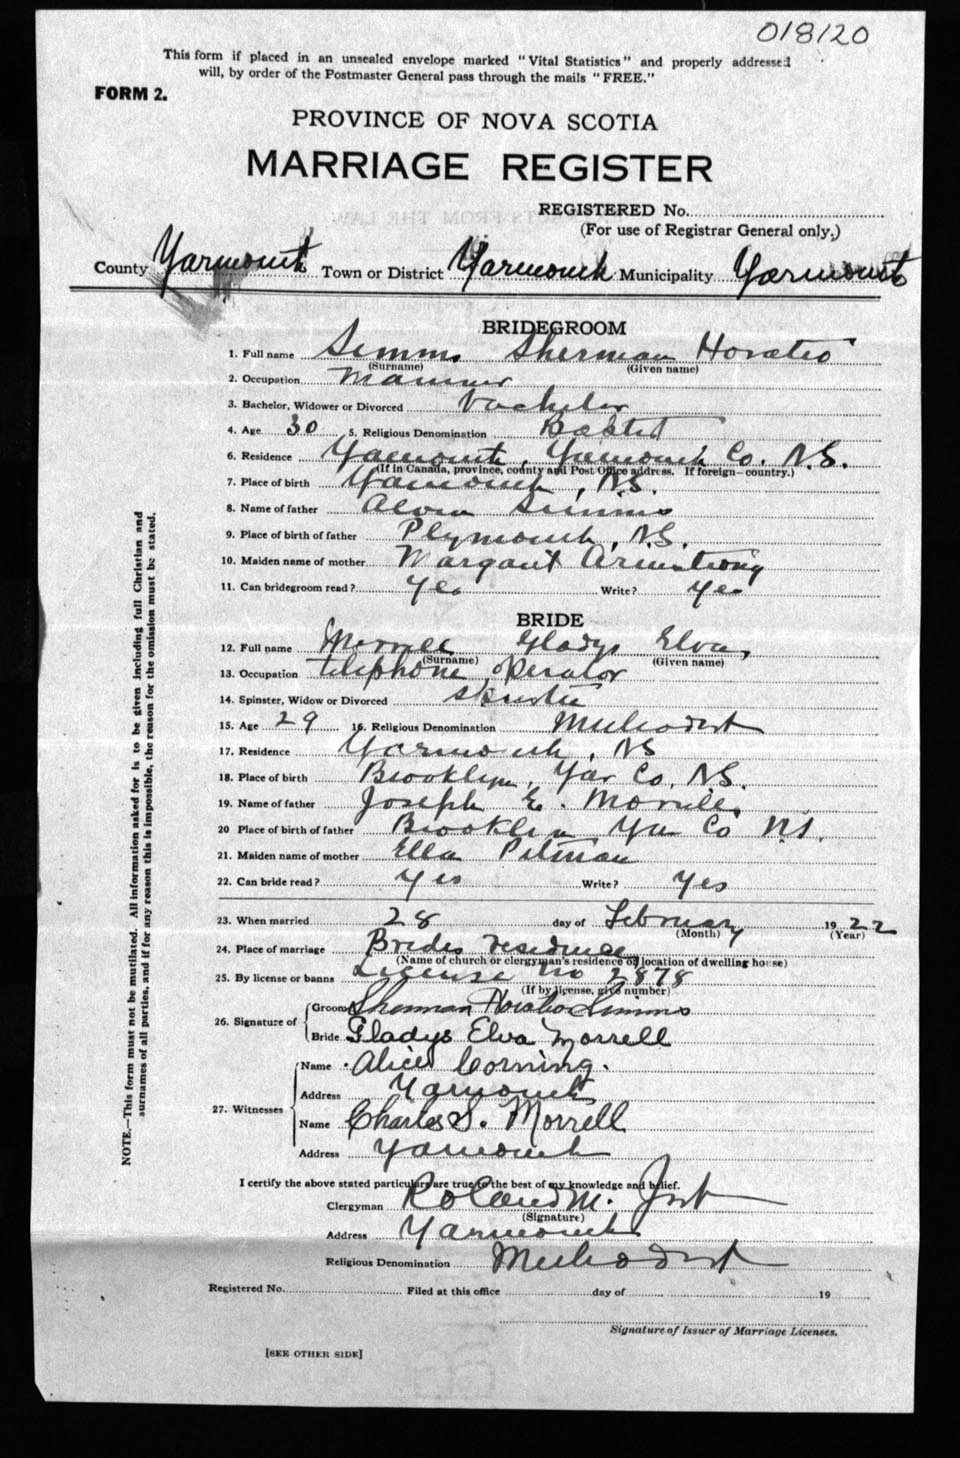 018120
This form if placed in an unsealed envelope marked "Vital Statistics" and properly addressed
will, by order of the Postmaster General pass through the mails "FREE."
FORM 2.
PROVINCE OF NOVA SCOTIA
MARRIAGE REGISTER
REGISTERED No.
(For use of Registrar General only.)
County Yarmouth Town or District Yarmouth Municipality Yarmouth
BRIDEGROOM
1. Full name Simms Sherman Horatio
(Surname) (Given name)
2. Occupation Mariner
3. Bachelor, Widower or Divorced bachelor
4. Age 30 5. Religious Denomination Baptist
6. Residence Yarmouth, Yarmouth Co. N.S.
(If in Canada, province, county and Post Office address. If foreign—country.)
7. Place of birth Yarmouth, N.S.
8. Name of father Alvin Simms
9. Place of birth of father Plymouth, N.S.
10. Maiden name of mother Margaret Armstrong
11. Can bridegroom read? Yes Write? Yes
BRIDE
12. Full name Morrell Gladys Elva
(Surname) (Given name)
13. Occupation telephone operator
14. Spinster, Widow or Divorced spinster
15. Age 29 16. Religious Denomination Methodist
17. Residence Yarmouth, NS
18. Place of birth Brooklyn, Yar Co. NS.
19. Name of father Joseph E. Morrell
20 Place of birth of father Brooklyn Yar Co N.S.
21. Maiden name of mother Ella Pitman
22. Can bride read? Yes Write? Yes
23. When married 28 day of February 1922
(Month) (Year)
24. Place of marriage Brides residence
(Name of church or clergyman's residence or location of dwelling house)
25. By license or banns License No 2878
(If by license, give number)
26. Signature of Groom Sherman Horatio Simms
Bride Gladys Elva Morrell
27. Witnesses Name Alice Corning.
Address Yarmouth
Name Charles S. Morrell
Address Yarmouth
I certify the above stated particulars are true to the best of my knowledge and belief.
Clergyman Roland M. Jost
(Signature)
Address Yarmouth
Religious Denomination Methodist
Registered No. Filed at this office day of 19
Signature of Issuer of Marriage Licenses.
[SEE OTHER SIDE]
NOTE.—This form must not be mutilated. All information asked for is to be given including full Christian and
surnames of all parties, and if for any reason this is impossible, the reason for the omission must be stated.